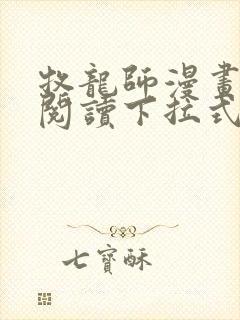 牧龍師漫畫
閱讀下拉式
七寶酥